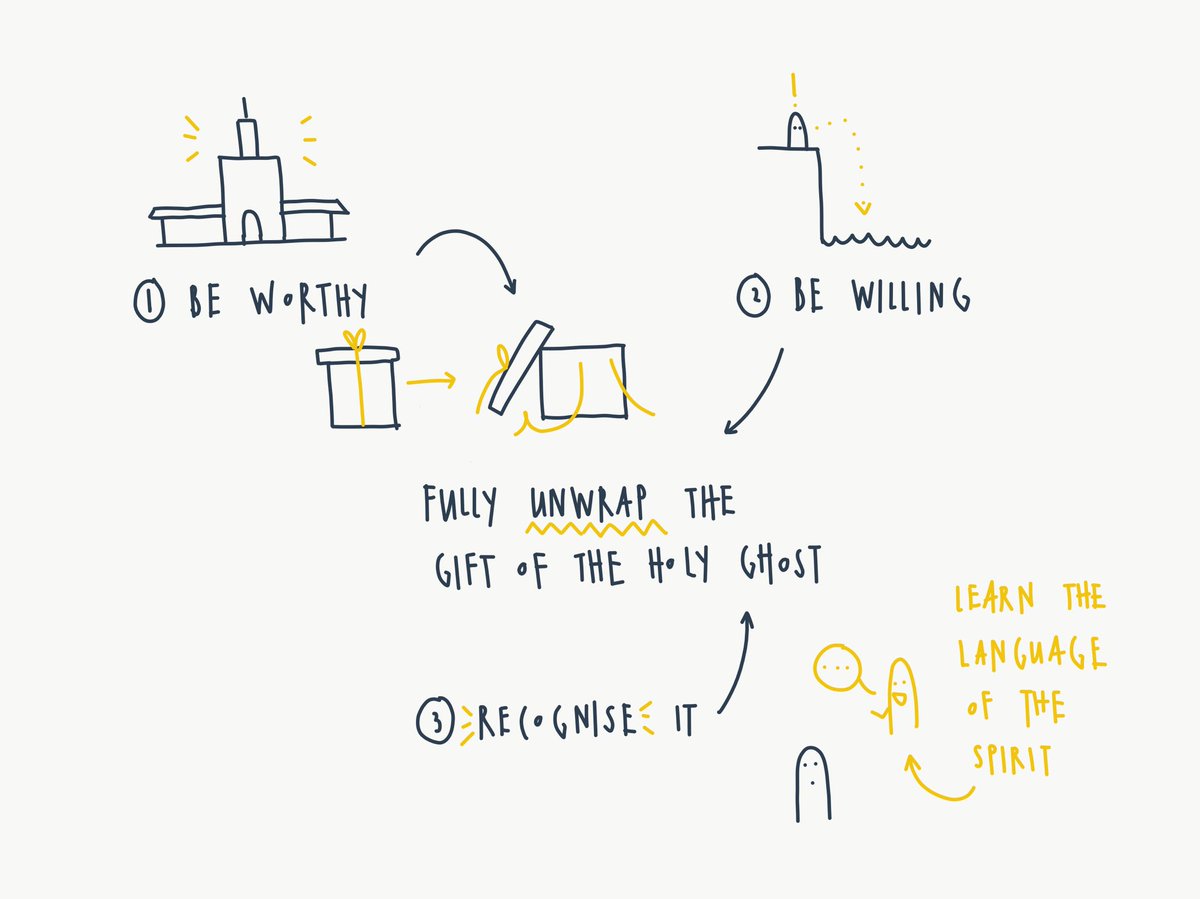 ① BE WORTHY
② BE WILLING
FULLY UNWRAP THE
GIFT OF THE HOLY GHOST
③ RECOGNISE IT
LEARN THE
LANGUAGE
OF THE
SPIRIT